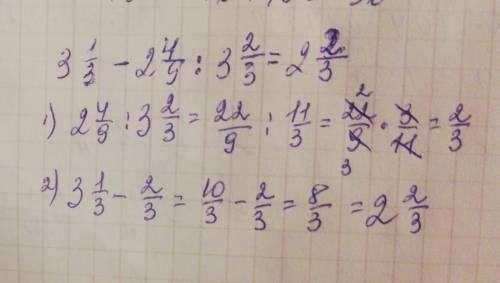 3 1/3 - 2 4/9 : 3 2/3 = 2 2/3
1) 2 4/9 : 3 2/3 = 22/9 : 11/3 = 22/9 · 3/11 = 2/3
2) 3 1/3 - 2/3 = 10/3 - 2/3 = 8/3 = 2 2/3